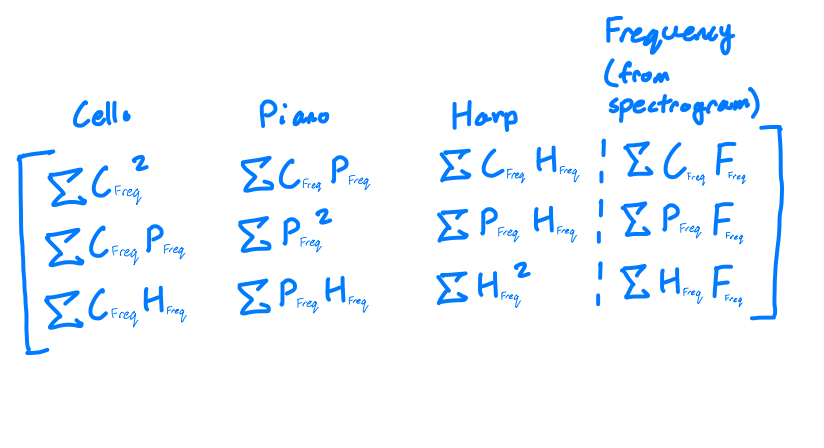 Frequency
(from
spectrogram)
Cello Piano Harp
∑C_Freq² ∑C_Freq P_Freq ∑C_Freq H_Freq ¦ ∑C_Freq F_Freq
∑C_Freq P_Freq ∑P_Freq² ∑P_Freq H_Freq ¦ ∑P_Freq F_Freq
∑C_Freq H_Freq ∑P_Freq H_Freq ∑H_Freq² ¦ ∑H_Freq F_Freq